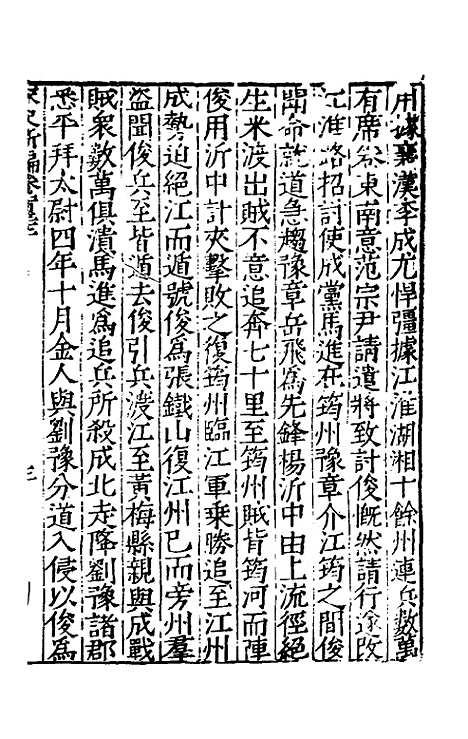 用據襄漢李成尤悍彊據江淮湖湘十餘州連兵數萬
有席卷東南意范宗尹請遣將致討俊慨然請行遂改
江淮路招討使成黨馬進在筠州豫章介江筠之間俊
聞命就道急趨豫章岳飛爲先鋒楊沂中由上流徑絕
生米渡出賊不意追奔七十里至筠州賊皆筠河而陣
俊用沂中計夾擊敗之復筠州臨江軍乗勝追至江州
成勢迫絕江而遁號俊爲張鐵山復江州已而旁州羣
盜聞俊兵至皆遁去俊引兵渡江至黃梅縣親與成戰
賊衆數萬俱潰馬進爲追兵所殺成北走降劉豫諸郡
悉平拜太尉四年十月金人與劉豫分道入侵以俊爲
宋史新編卷
三